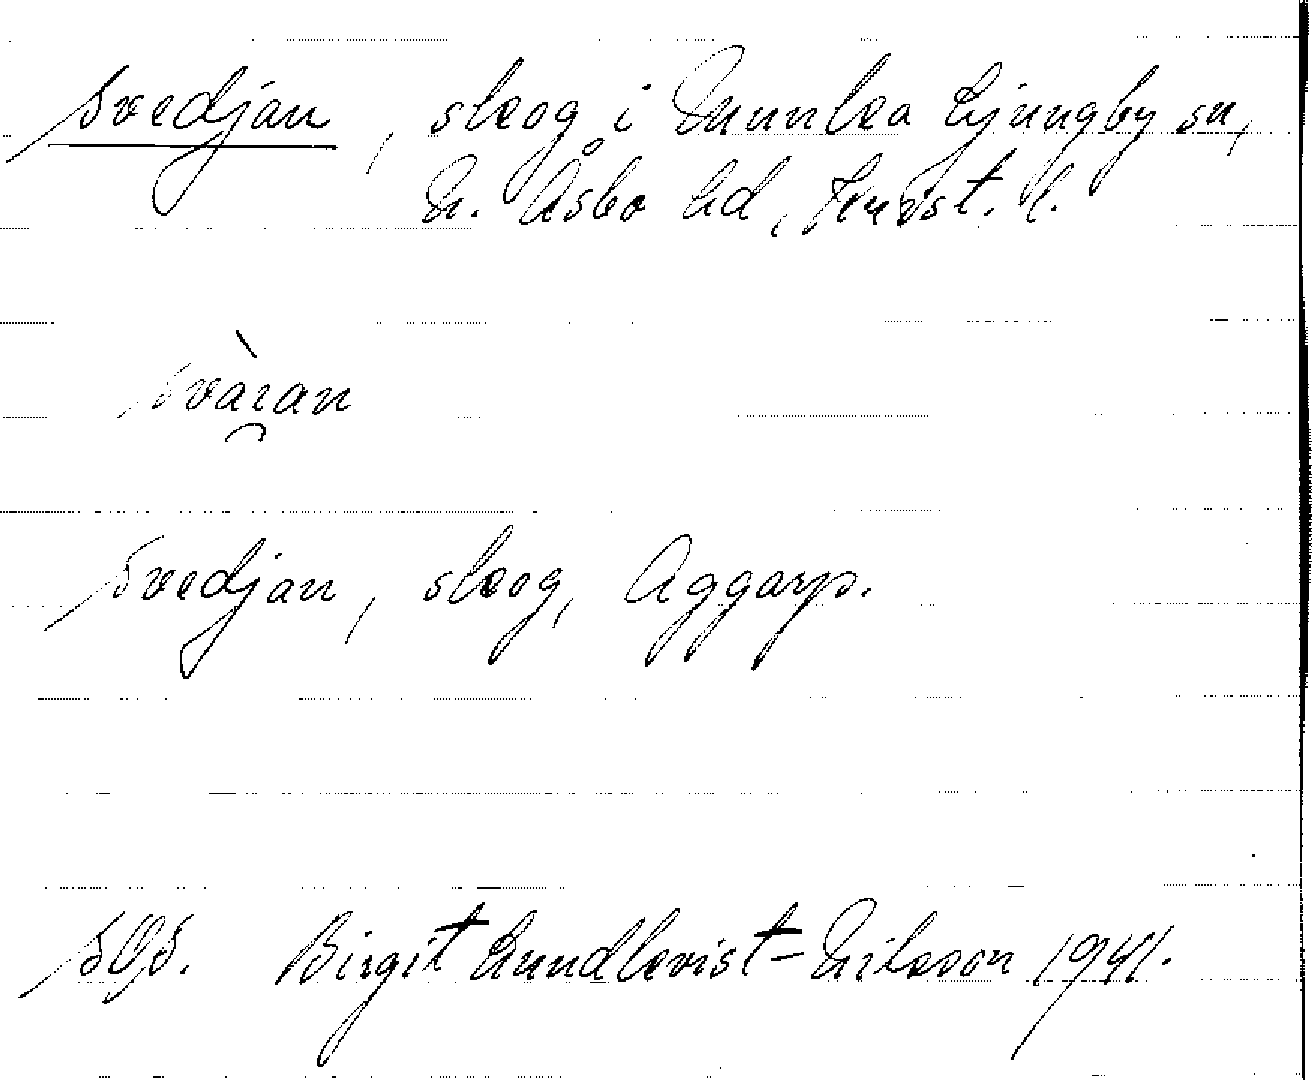 Svedjan, skog i Munka Ljungby sn,
N. Åsbo hd, Krist. l.
Svedjan, skog, Aggarp.
SOS. Birgit Lundkvist-Nilsson 1941.